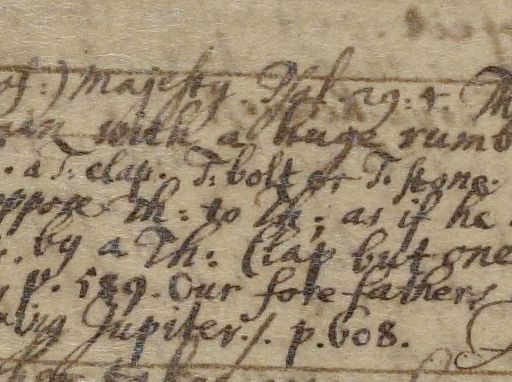 Majesty. Psal. 29: 4. Th
man with a huge rumb
. a T: clap. T: bolt or T: stone.
ppose Th: to be; as if he
. by a Th: Clap but one
p. 589. Our fore fathers
Jupiter./. p. 608.